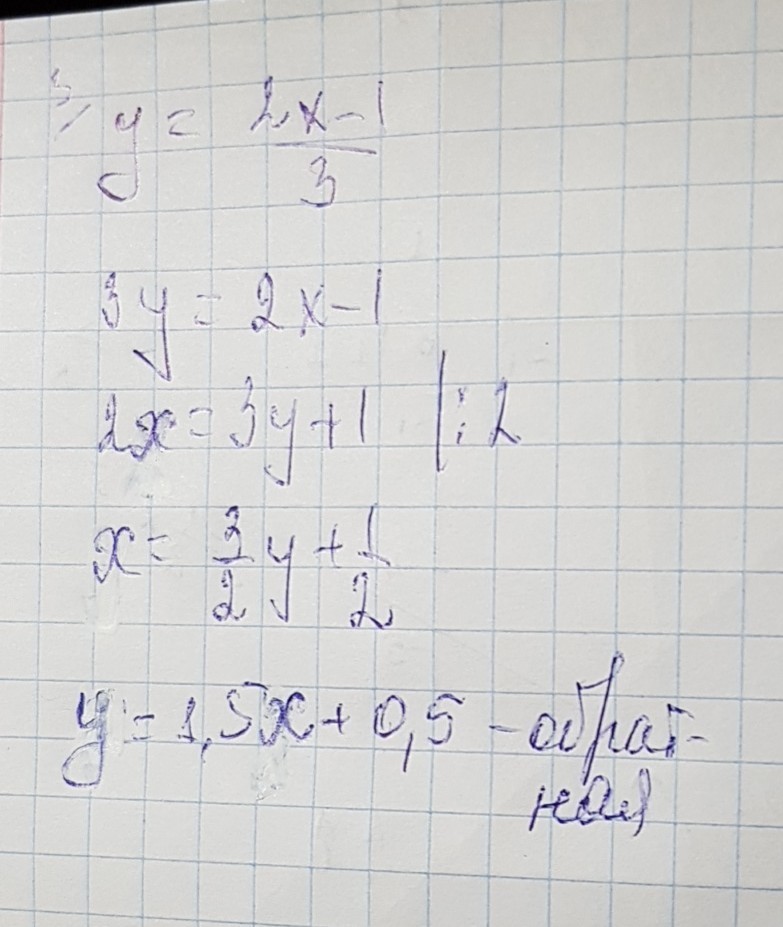 y = (2x-1)/3
3y = 2x-1
2x = 3y+1 |:2
x = 3/2 y + 1/2
y = 1,5x + 0,5 - обрат-
ная